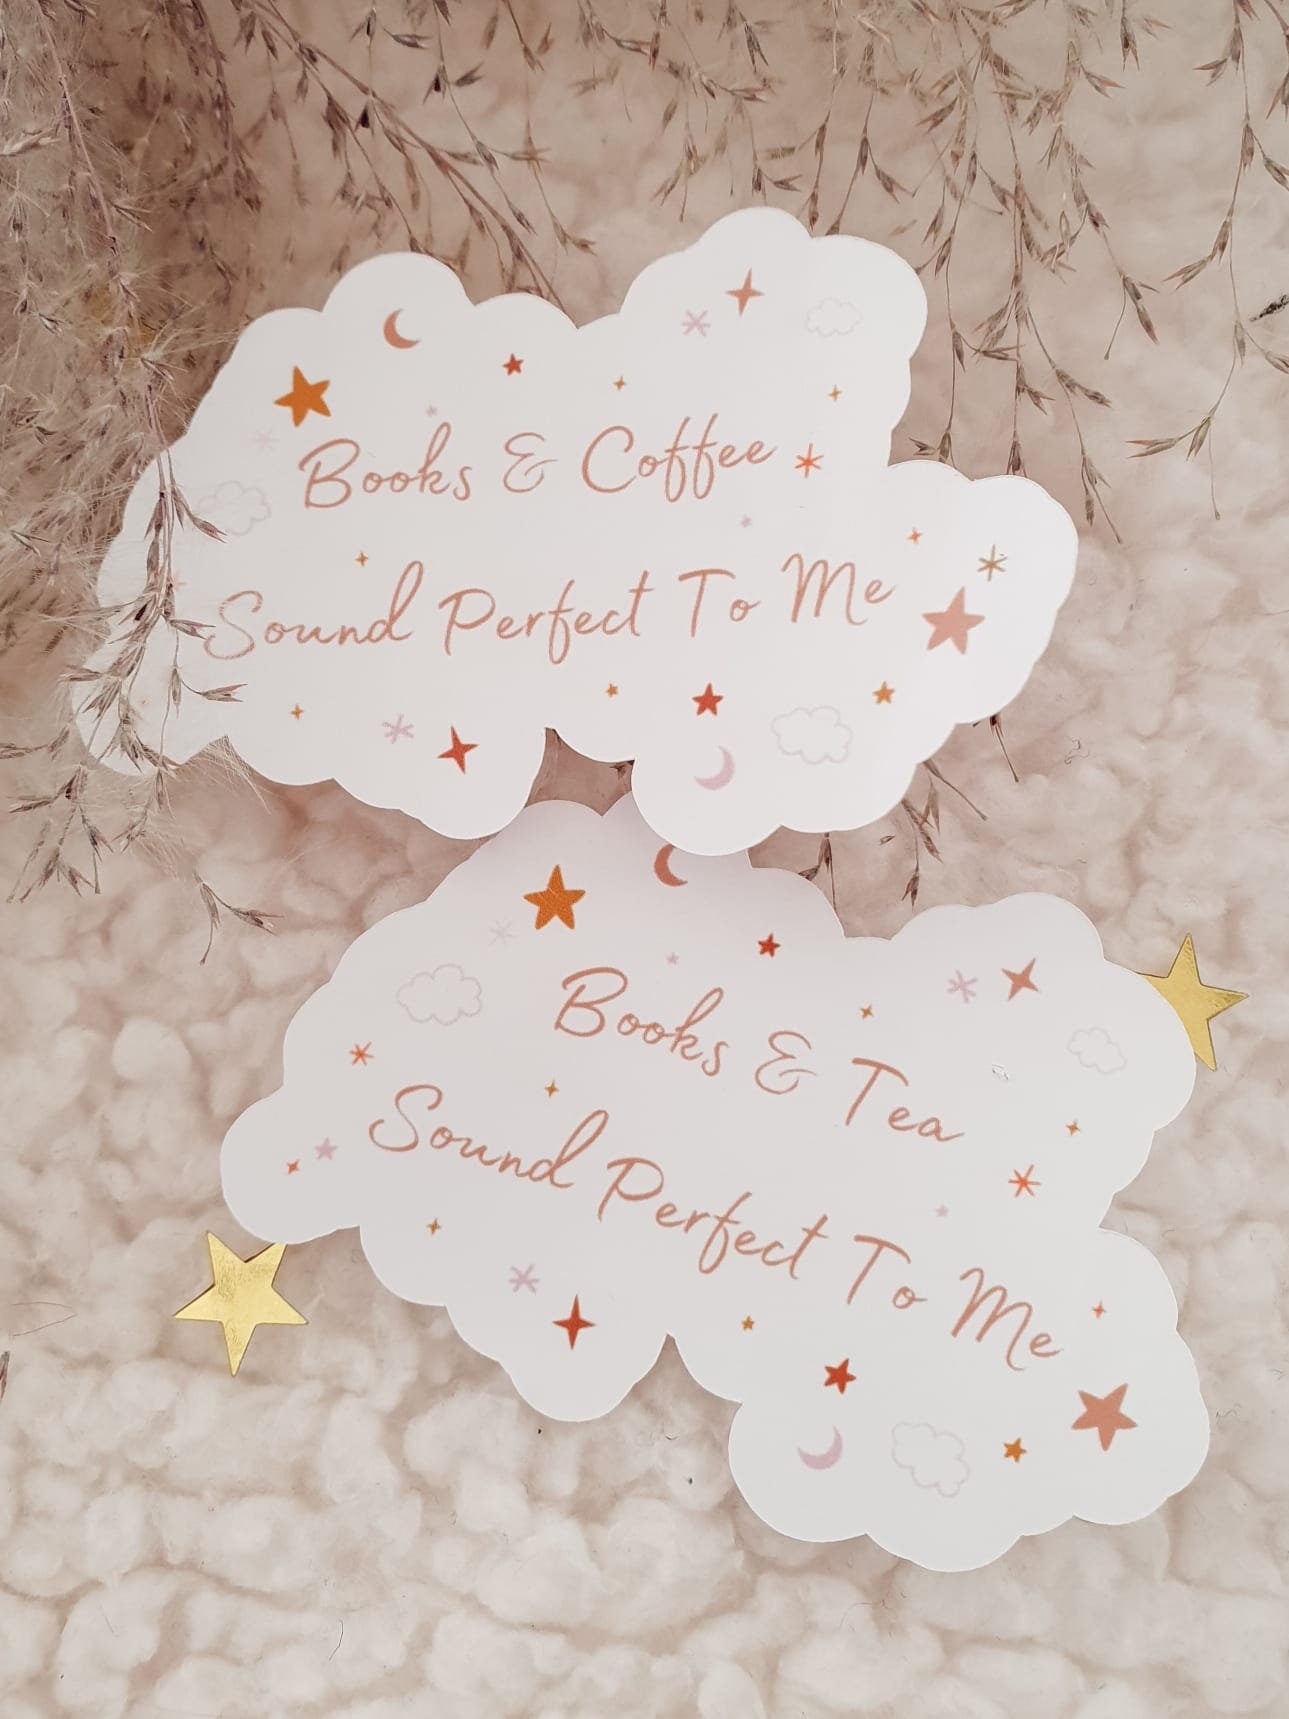 Books & Coffee
Sound Perfect To Me
Books & Tea
Sound Perfect To Me